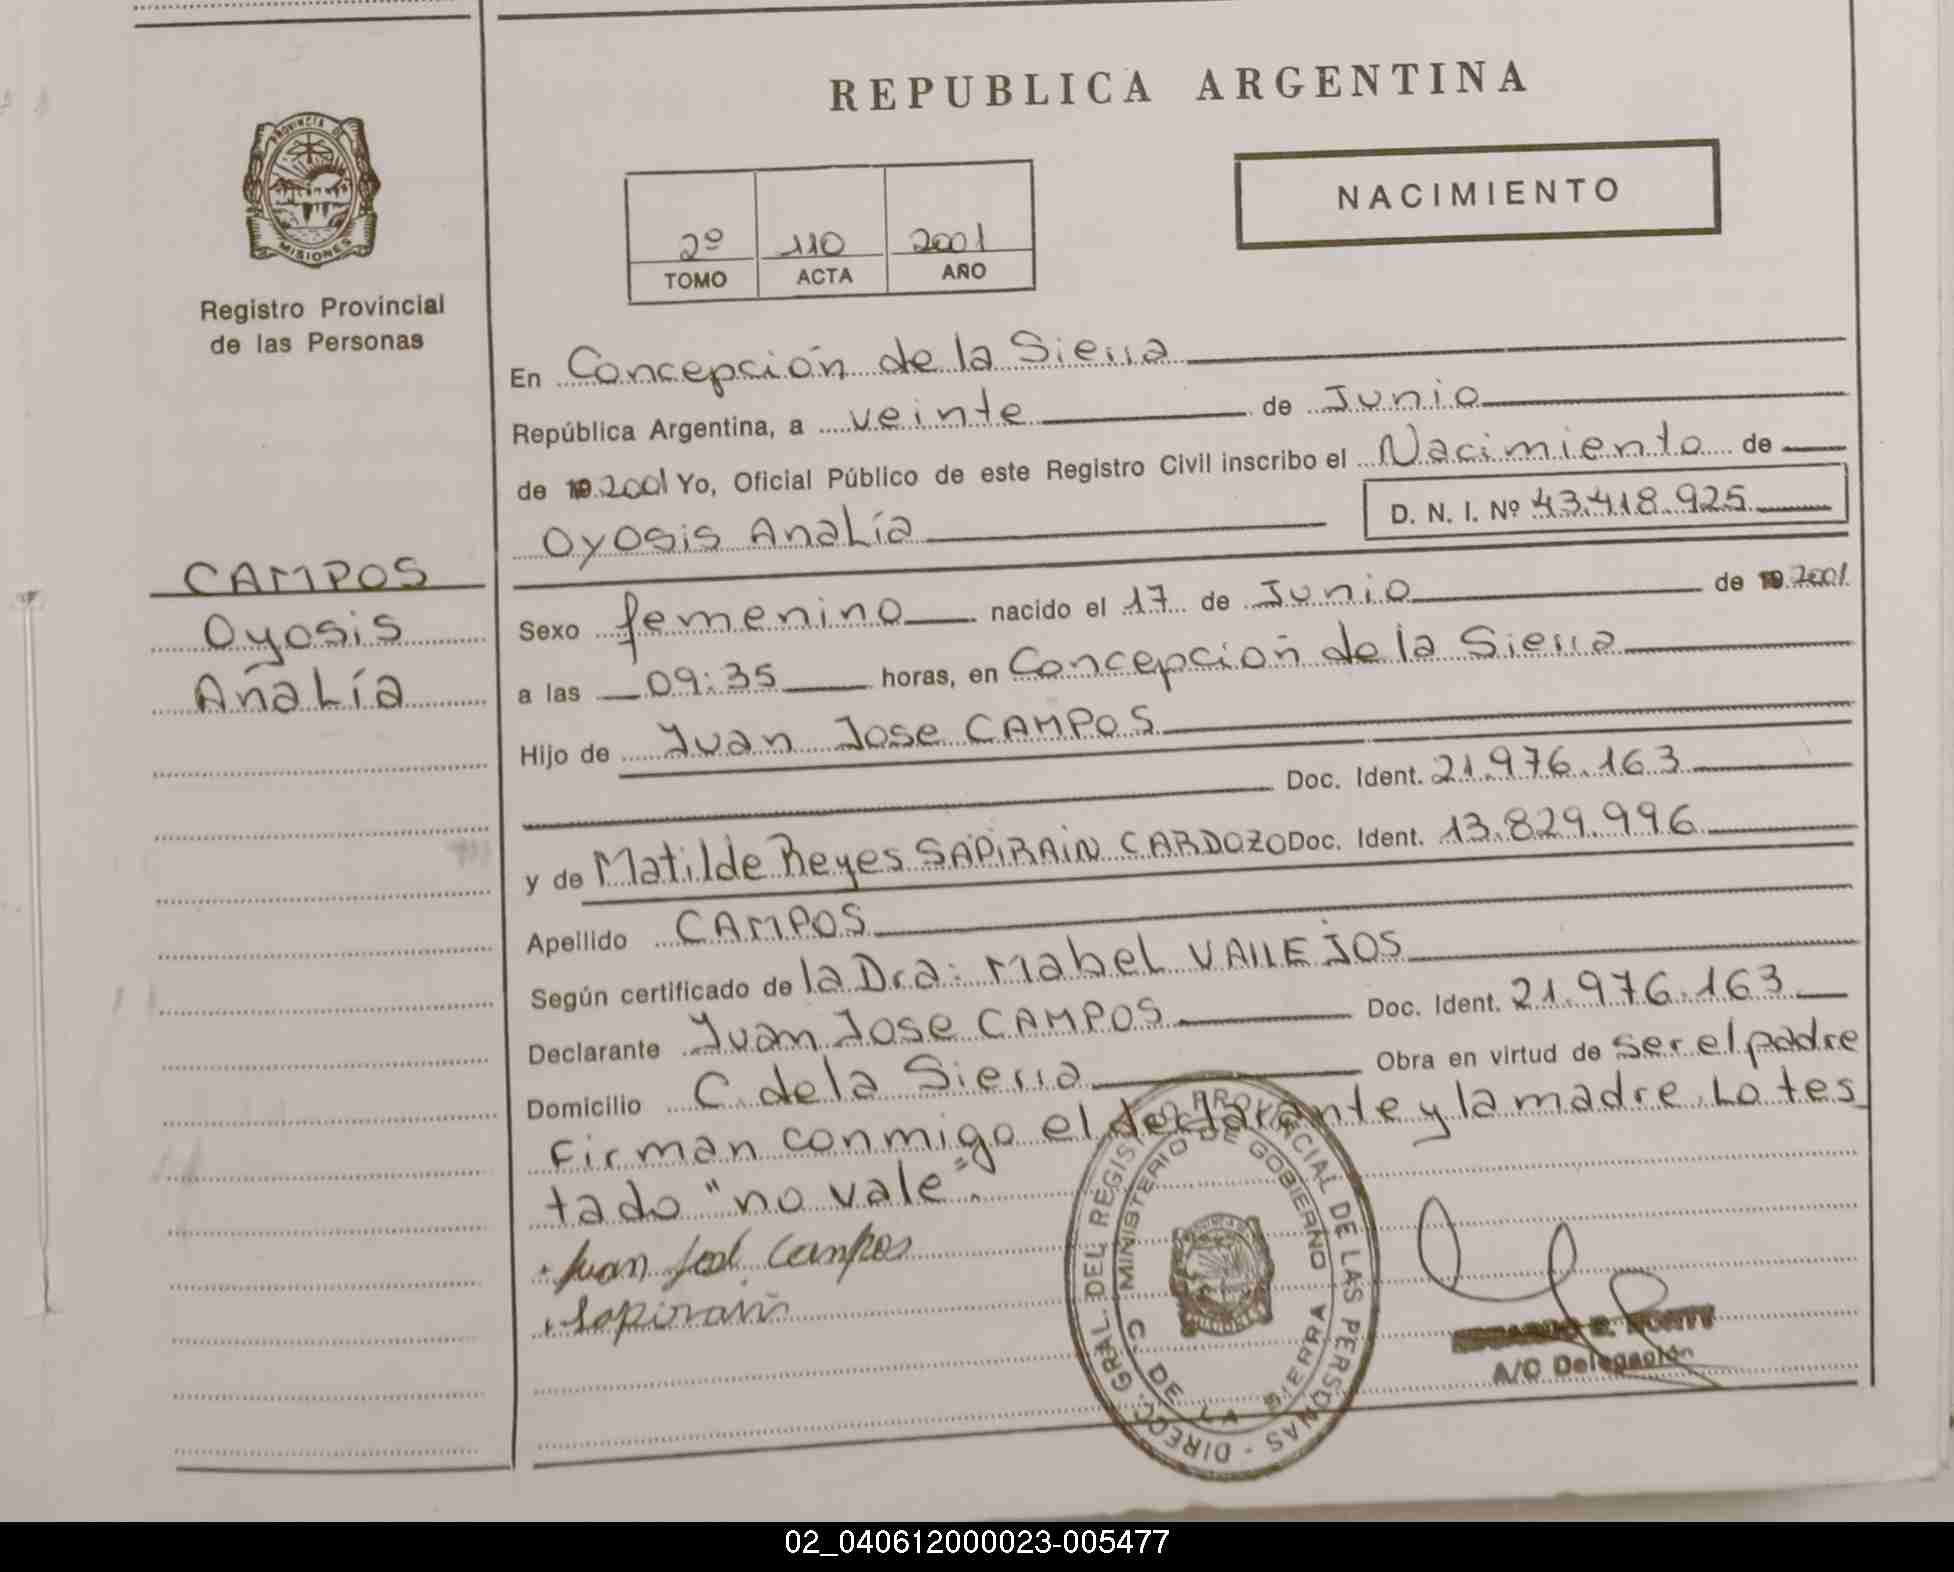 REPUBLICA ARGENTINA
PROVINCIA DE
MISIONES
Registro Provincial
de las Personas
NACIMIENTO
2º 110 2001
TOMO ACTA AÑO
En Concepción de la Sierra
República Argentina, a veinte de Junio
de 19 2001 Yo, Oficial Público de este Registro Civil inscribo el Nacimiento de
Oyosis Analía D. N. I. Nº 43.418.925
CAMPOS
Oyosis
Analía
Sexo femenino nacido el 17 de Junio de 19 2001
a las 09:35 horas, en Concepción de la Sierra
Hijo de Juan Jose CAMPOS
Doc. Ident. 21.976.163
y de Matilde Reyes SAPIRAIN CARDOZO Doc. Ident. 13.829.996
Apellido CAMPOS
Según certificado de la Dra: Mabel VALLEJOS
Declarante Juan Jose CAMPOS Doc. Ident. 21.976.163
Domicilio C. de la Sierra Obra en virtud de ser el padre
Firman conmigo el declarante y la madre. Lo tes
tado "no vale".
Juan José Campos
Sapirain
DIRECC. GRAL. DEL REGISTRO PROVINCIAL DE LAS PERSONAS
MINISTERIO DE GOBIERNO
C. DE LA SIERRA
A/C Delegación
02_040612000023-005477